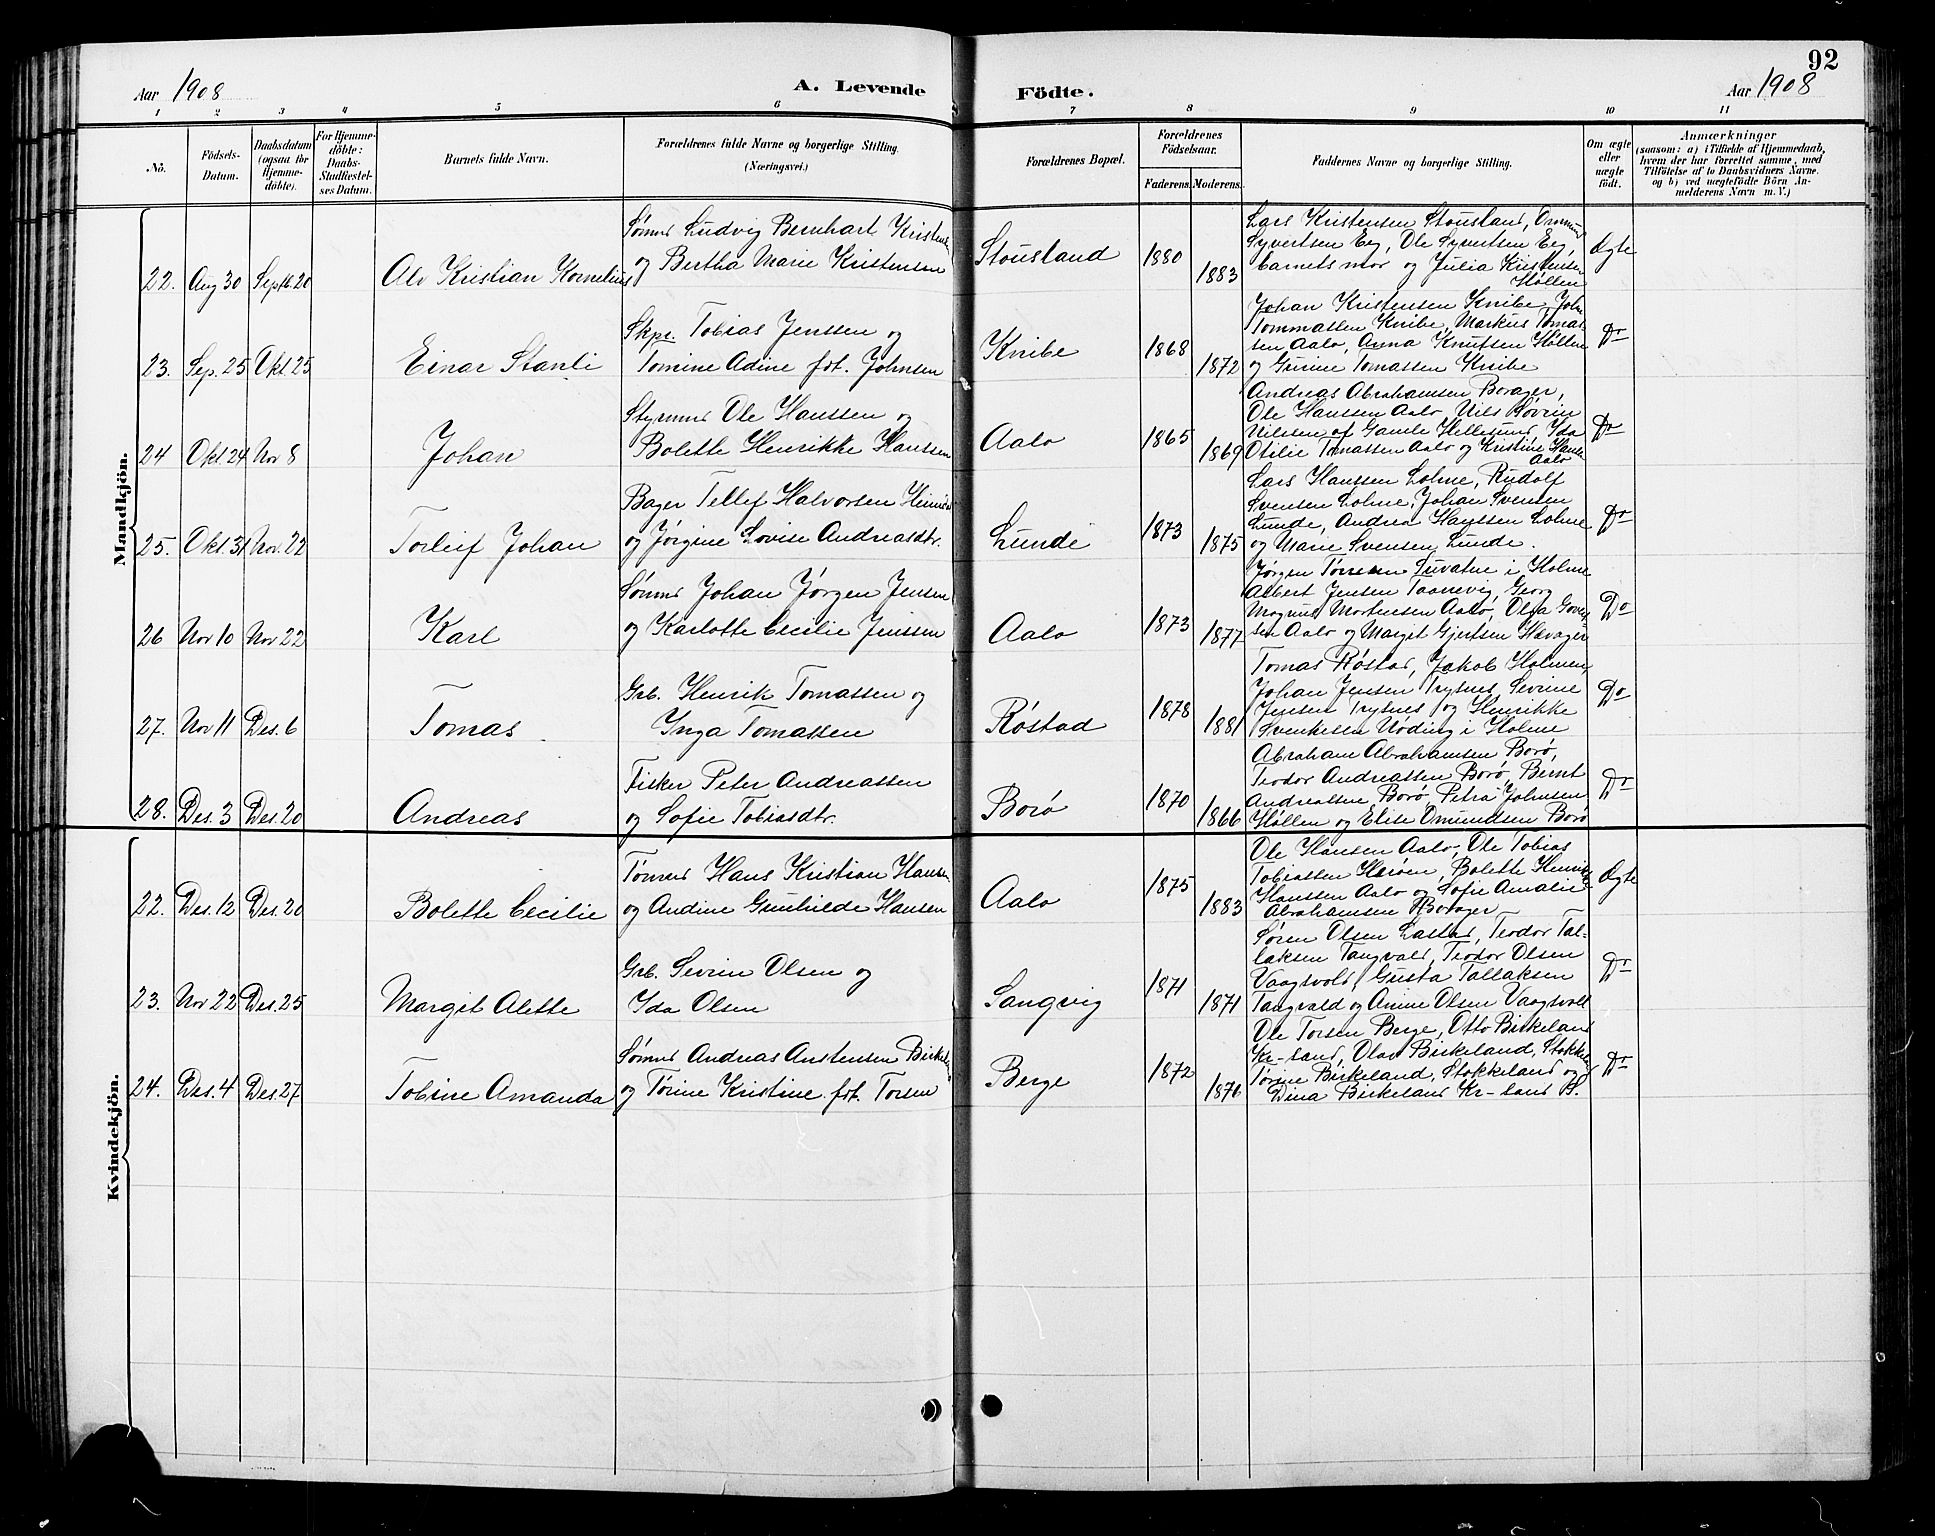 92
Aar 1908 A. Levende Födte. Aar 1908
1 2 3 4 5 6 7 8 9 10 11
No.
Födsels-
Datum.
Daabsdatum
(ogsaa for
Hjemme-
döbte).
For Hjemme-
döbte:
Daabs-
Stadfæstel-
ses Datum.
Barnets fulde Navn.
Forældrenes fulde Navne og borgerlige Stilling.
(Næringsvei.)
Forældrenes Bopæl.
Forældrenes
Födselsaar.
Faderens. Moderens.
Faddernes Navne og borgerlige Stilling.
Om ægte
eller
uægte
født.
Anmærkninger
(saasom: a) i Tilfælde af Hjemmedaab,
hvem der har forrettet samme, med
Tilföielse af to Daabsvidners Navne.
og b) ved uægtefödte Börn An-
melderens Navn m. V.)
Mandkjön.
22. Aug 30 Septb. 20 Alv Kristian Kornelius
Sømnd Ludvig Bernhart Kristensen
og Bertha Marie Kristensen
Stousland 1880 1883
Lars Kristensen Stousland,
Syvertsen Eeg, Ole Syvertsen Eeg,
barnets mor og Julia Kristensen
Høllen
Ægte
23. Sep. 25 Okt 25 Einar Stanli
Skpr. Tobias Jenssen og
Tomine Adine fdt. Johnsen
Knibe 1868 1872
Johan Kristensen Knibe, John
Tommassen Knibe, Markus Tomas-
sen Aalo, Anna Knutsen Høllen
og Gurine Tomassen Knibe
Do
24 Okt 24 Nov 8 Johan
Styrmnd Ole Hanssen og
Bolette Henrikke Hanssen
Aalo 1865 1869
Andreas Abrahamsen Borager,
Ole Hanssen Aalo, Nils Søvrin
Nilssen af Gamle Hellesund, Ida
Otilie Tomassen Aalo og Kristine Hansen
Aalo
Do
25. Okt 31 Nov. 22 Torleif Johan
Bager Tellef Halvorsen
og Jørgine Lovise Andreasdtr.
Lunde 1873 1875
Lars Hanssen Lohne, Rudolf
Svensen Lohne, Johan Svensen
Lunde, Andrea Hanssen Lohne
og Marie Svensen Lunde.
Do
26 Nov 10 Nov 22 Karl
Sømnd Johan Jørgen Jensen
og Karlotte Cecilie Jenssen
Aalo 1873 1877
Jørgen Tørresen i Holme
Albert Jensen Taanevig, Georg
Magnus Mortensen Aalo, Olga
Aalo og Margit Gjertsen Høvager
Do
27. Nov 11 Des. 6 Tomas
Grb. Henrik Tomassen og
Inga Tomassen
Røstad 1878 1881
Tomas Røstad, Jakob Holmen,
Johan Jensen Trysnes, Sevrine
Jensen Trysnes og Henrikke
Svenkesen Nøding i Holme
Do
28. Des. 3 Des. 20 Andreas
Fisker Peter Andreassen
og Sofie Tobiasdtr.
Borø 1870 1866
Abraham Abrahamsen Borø,
Teodor Andreassen Borø, Bernt
Andreassen Borø, Petra Johnsen
Høllen og Elise Omundsen Borø
Do
Kvindekjön.
22. Des. 12 Des. 20 Bolette Cecilie
Tømmd Hans Kristian Hansen
og Andine Gunhilde Hansen
Aalo 1875 1883
Ole Hansen Aalo, Ole Tobias
Tobiassen Herøen, Bolette Henrikke
Hanssen Aalo og Sofie Amalie
Abrahamsen Borager
Ægte
23. Nov 22 Des. 25 Margit Alette
Grb. Sevrin Olsen og
Ida Olsen
Langvig 1871 1871
Søren Olsen Lastad, Teodor Tal-
laksen Tangvald, Teodor Olsen
Vaagsvold, Gusta Tallaksen
Tangvald og Anine Olsen Vaagsvoll
Do
24. Des. 4 Des. 27 Tobine Amanda
Sømnd Andreas Anstensen Birkeland
og Tørine Kristine fdt. Torsen
Berge 1872 1876
Ole Torsen Berge, Otto Birkeland
Kr-sand, Olav Birkeland, Stokkeland
Tørine Birkeland, Stokkeland og
Dina Birkeland Kr-sand B.
Do